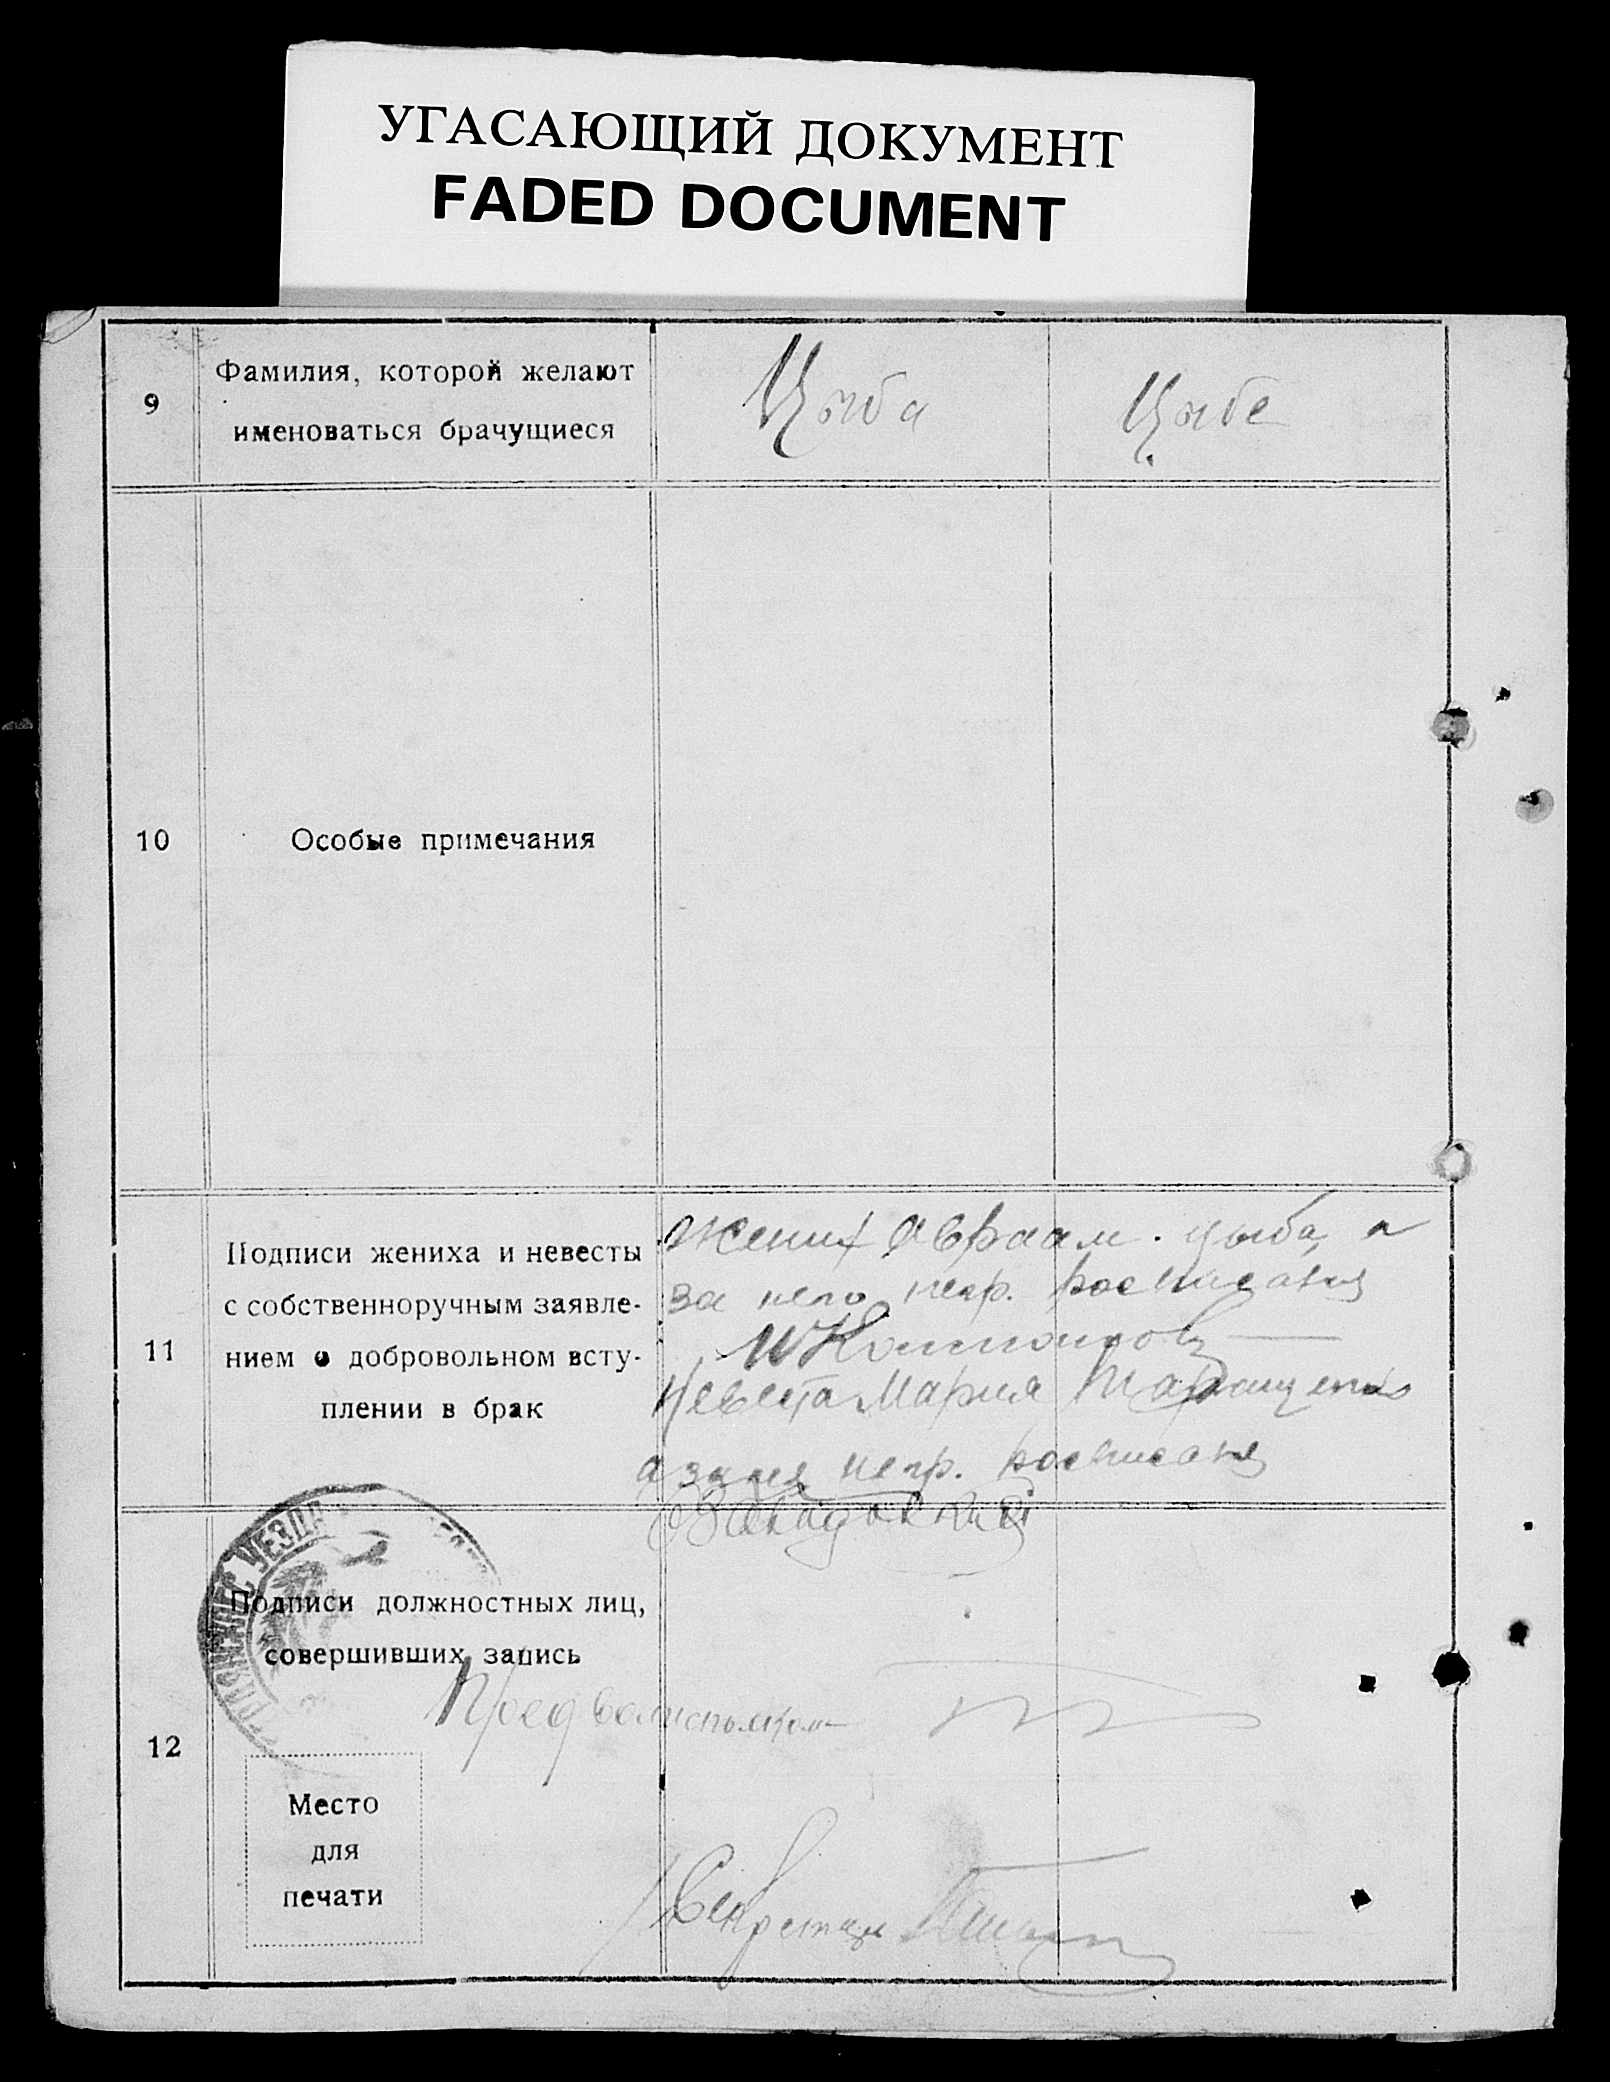 УГАСАЮЩИЙ ДОКУМЕНТ
FADED DOCUMENT
9
Фамилия, которой желают
именоваться брачущиеся
Цыба
Цыбе
10
Особые примечания
11
Подписи жениха и невесты
с собственноручным заявле-
нием о добровольном всту-
плении в брак
Жених Авраам. цыба, а
за него негр. росписался
Невеста Мария Таращенко
а за нея негр. росписался
Завадовский
УЕЗДА
12
Подписи должностных лиц,
совершивших запись
Пред волисполкома
Место
для
печати
Секретарь